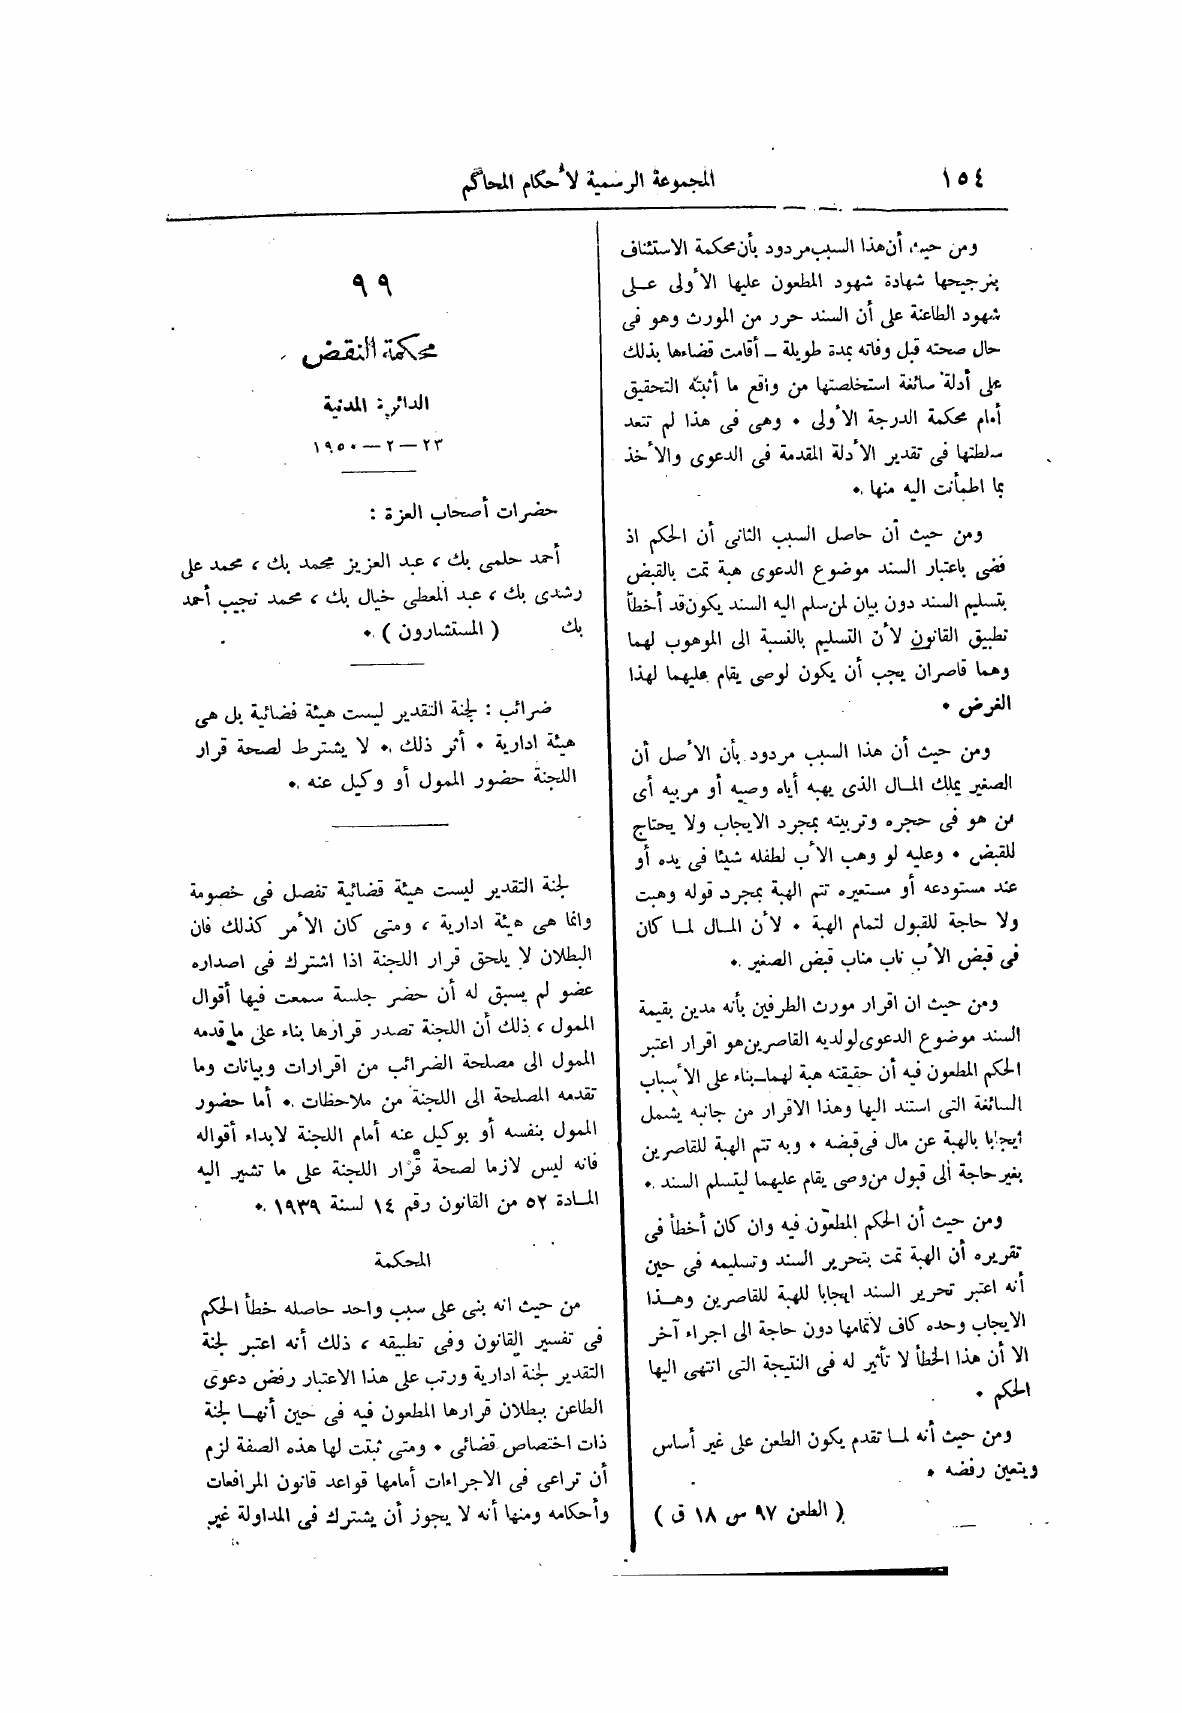 ١٥٤
المجموعة الرسمية لأحكام المحاكم
ومن حيث أن هذا السبب مردود بأن محكمة الاستئناف
بترجيحها شهادة شهود المطعون عليها الأولى على
شهود الطاعنة على أن السند حرر من المورث وهو فى
حال صحته قبل وفاته بمدة طويلة ـ أقامت قضاءها بذلك
على أدلة سائغة استخلصتها من واقع ما أثبته التحقيق
أمام محكمة الدرجة الأولى • وهى فى هذا لم تتعد
سلطتها فى تقدير الأدلة المقدمة فى الدعوى والأخذ
بما اطمأنت اليه منها •
ومن حيث أن حاصل السبب الثانى أن الحكم اذ
قضى باعتبار السند موضوع الدعوى هبة تمت بالقبض
بتسليم السند دون بيان لمن سلم اليه السند يكون قد أخطأ
تطبيق القانون لأن التسليم بالنسبة الى الموهوب لهما
وهما قاصران يجب أن يكون لوصى يقام عليهما لهذا
الغرض •
ومن حيث أن هذا السبب مردود بأن الأصل أن
الصغير يملك المال الذى يهبه أياه وصيه أو مربيه أى
من هو فى حجره وتربيته بمجرد الايجاب ولا يحتاج
للقبض • وعليه لو وهب الأب لطفله شيئا فى يده أو
عند مستودعه أو مستعيره تتم الهبة بمجرد قوله وهبت
ولا حاجة للقبول لتمام الهبة • لأن المال لما كان
فى قبض الأب ناب مناب قبض الصغير •
ومن حيث ان اقرار مورث الطرفين بأنه مدين بقيمة
السند موضوع الدعوى لولديه القاصرين هو اقرار اعتبر
الحكم المطعون فيه أن حقيقته هبة لهما ـ بناء على الأسباب
السائغة التى استند اليها وهذا الاقرار من جانبه يشمل
ايجابا بالهبة عن مال فى قبضه • وبه تتم الهبة للقاصرين
بغير حاجة الى قبول من وصى يقام عليهما ليتسلم السند •
ومن حيث أن الحكم المطعون فيه وان كان أخطأ فى
تقريره أن الهبة تمت بتحرير السند وتسليمه فى حين
أنه اعتبر تحرير السند ايجابا للهبة للقاصرين وهذا
الايجاب وحده كاف لاتمامها دون حاجة الى اجراء آخر
الا أن هذا الخطأ لا تأثير له فى النتيجة التى انتهى اليها
الحكم •
ومن حيث أنه لما تقدم يكون الطعن على غير أساس
ويتعين رفضه •
( الطعن ٩٧ س ١٨ ق )
٩٩
محكمة النقض
الدائرة المدنية
٢٣ — ٢ — ١٩٥٠
حضرات أصحاب العزة :
أحمد حلمى بك ، عبد العزيز محمد بك ، محمد على
رشدى بك ، عبد المعطى خيال بك ، محمد نجيب أحمد
بك ( المستشارون ) •
ضرائب : لجنة التقدير ليست هيئة قضائية بل هى
هيئة ادارية • أثر ذلك • لا يشترط لصحة قرار
اللجنة حضور الممول أو وكيل عنه •
لجنة التقدير ليست هيئة قضائية تفصل فى خصومة
وانما هى هيئة ادارية ، ومتى كان الأمر كذلك فان
البطلان لا يلحق قرار اللجنة اذا اشترك فى اصداره
عضو لم يسبق له أن حضر جلسة سمعت فيها أقوال
الممول ، ذلك أن اللجنة تصدر قرارها بناء على ما قدمه
الممول الى مصلحة الضرائب من اقرارات وبيانات وما
تقدمه المصلحة الى اللجنة من ملاحظات • أما حضور
الممول بنفسه أو بوكيل عنه أمام اللجنة لابداء أقواله
فانه ليس لازما لصحة قرار اللجنة على ما تشير اليه
المادة ٥٢ من القانون رقم ١٤ لسنة ١٩٣٩ •
المحكمة
من حيث انه بنى على سبب واحد حاصله خطأ الحكم
فى تفسير القانون وفى تطبيقه ، ذلك أنه اعتبر لجنة
التقدير لجنة ادارية ورتب على هذا الاعتبار رفض دعوى
الطاعن ببطلان قرارها المطعون فيه فى حين أنها لجنة
ذات اختصاص قضائى • ومتى ثبتت لها هذه الصفة لزم
أن تراعى فى الاجراءات أمامها قواعد قانون المرافعات
وأحكامه ومنها أنه لا يجوز أن يشترك فى المداولة غير